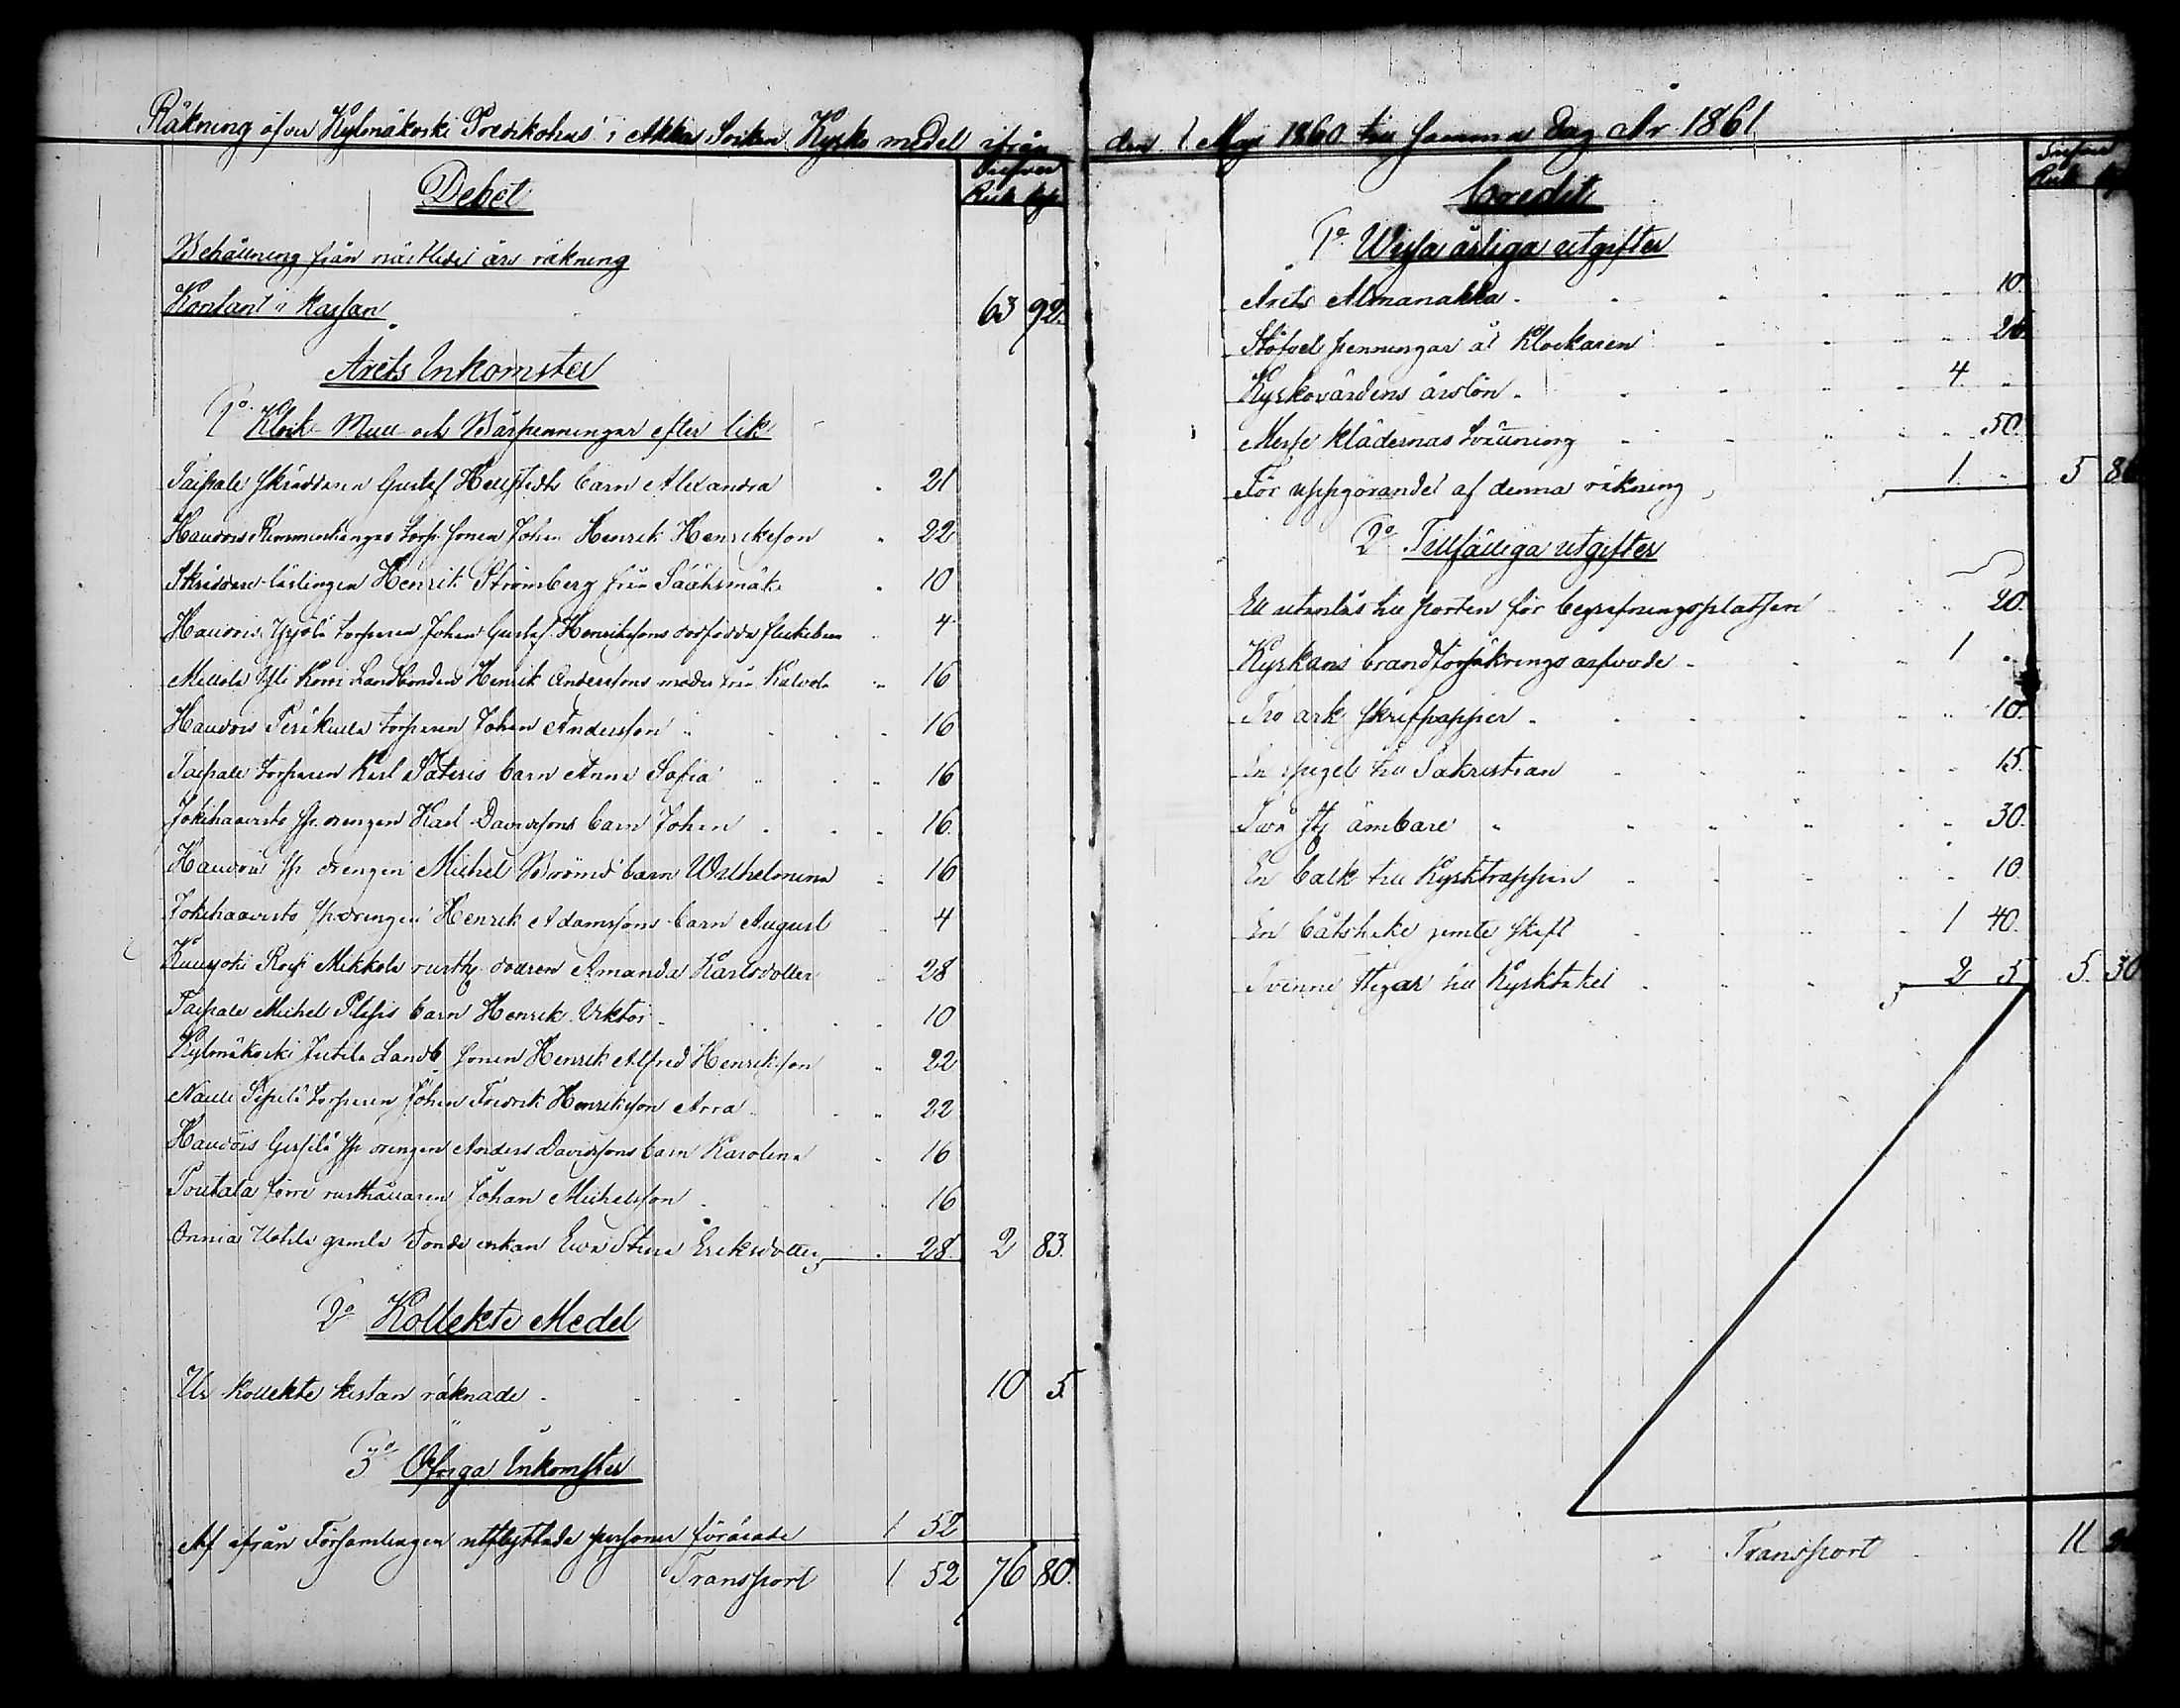 Räkning öfver Kylmäkoski Predikohus i Akkas Socken Kyrko medel ifrån den 1 Maji 1860 till samma dag År 1861
Debet
Silfver
Rub. Kop.
Behållning från nästledit års räkning
Kontant i kassan 63 92.
Årets Inkomster
1o Klock- Mull- och Bårpenningar efter lik
Taipale Skräddaren Gustaf Hellstedts barn Alexandra 21
Haudois torp. sonen Johan Henrik Henriksson 22
Skräddare lärlingen Henrik Strömberg från Sääksmäki 10
Haudois torparen Johan Gustaf Henrikssons dödfödda flickebarn 4
Mellola Landbonden Henrik Anderssons moder från Kalvola 16
Haudois torparen Johan Andersson 16
Taipale torparen Karl barn Anna Sofia 16
Jokihaavisto sp. drengen Karl Davidssons barn Johan 16.
Haudois sp drengen Michel barn Wilhelmina 16
Jokihaavisto sp. drengen Henrik Adamssons barn August 4
Kuusjoki Mikkola rusth. dottren Amanda Karlsdotter 28
Taipale Michel barn Henrik Viktor 10
Kylmäkoski Jutila Landb. sonen Henrik Alfred Henriksson 22
torparen Johan Fredrik Henriksson 22
Haudois sp drengen Anders Davidssons barn Karolina 16
Toutala förre rusthållaren Johan Michelsson 16
Annia Uotila gamla enkan Eva Stina Eriksdotter 28. 2 83.
2o Kollekte Medel
Ur kollekte kistan räknade 10 5.
3o Öfriga Inkomster
Af ifrån Församlingen utflyttade personer förärade 1 52
Transport 1 52 76 80.
Credit
Silfver
Rub.
1o Wissa årliga utgifter
Årets Almanakka 10.
Stöfvel penningar åt Klockaren 26.
Kyrkovärdens årslön 4 "
Messe klädernas tvättning 50.
För uppgörandet af denna räkning 1 " 5 86
2o Tillfälliga utgifter
Ett utanlås till porten för begrafningsplatsen 20.
Kyrkans brandförsäkrings afvode 1 "
Tio ark skrifpapper 10.
En spegel till Sakristian 15.
Två st ämbare 30.
En balk till Kyrktrappan 10
En båtshake jemte skaft 1 40.
Tvenne stegar till Kyrktaket 2 5 5. 30
Transport 11